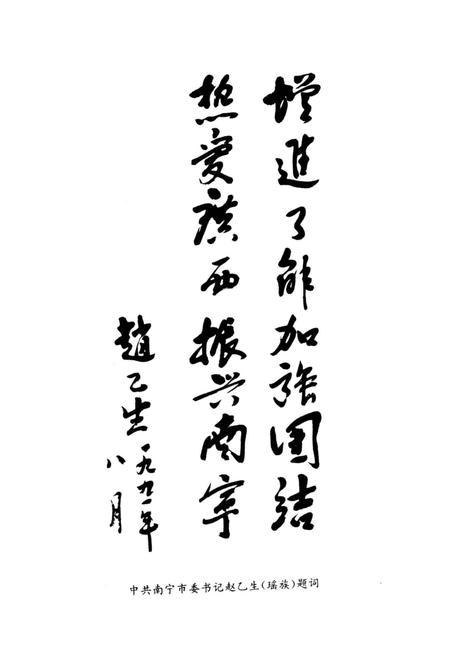 增進了解加强团结
热爱广西振兴南宁
趙乙生一九九一年
八月
中共南宁市委书记赵乙生(瑶族)题词